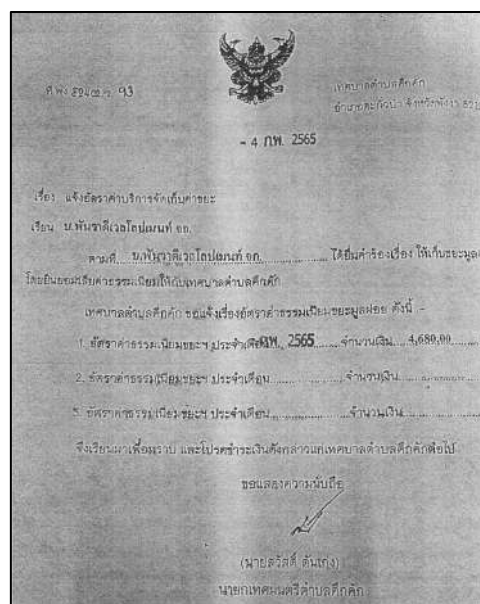 ที่ พง 52402/ว 93
เทศบาลตำบลคึกคัก
อำเภอตะกั่วป่า จังหวัดพังงา
- 4 กพ. 2565
เรื่อง แจ้งอัตราค่าบริการจัดเก็บค่าขยะ
เรียน บ.พันวาดีเวลโลปเมนท์ จก.
ตามที่ บ.พันวาดีเวลโลปเมนท์ จก. ได้ยื่นคำร้องเรื่อง ให้เก็บขยะมูล
โดยยินยอมเสียค่าธรรมเนียมให้กับเทศบาลตำบลคึกคัก
เทศบาลตำบลคึกคัก ขอแจ้งเรื่องอัตราค่าธรรมเนียมขยะมูลฝอย ดังนี้ :-
1. อัตราค่าธรรมเนียมขยะฯ ประจำเดือน กพ. 2565 จำนวนเงิน 4,680.00
2. อัตราค่าธรรมเนียมขยะฯ ประจำเดือน จำนวนเงิน
3. อัตราค่าธรรมเนียมขยะฯ ประจำเดือน จำนวนเงิน
จึงเรียนมาเพื่อทราบ และโปรดชำระเงินดังกล่าวแก่เทศบาลตำบลคึกคักต่อไป
ขอแสดงความนับถือ
(นายสวัสดิ์ ตันเก่ง)
นายกเทศมนตรีตำบลคึกคัก